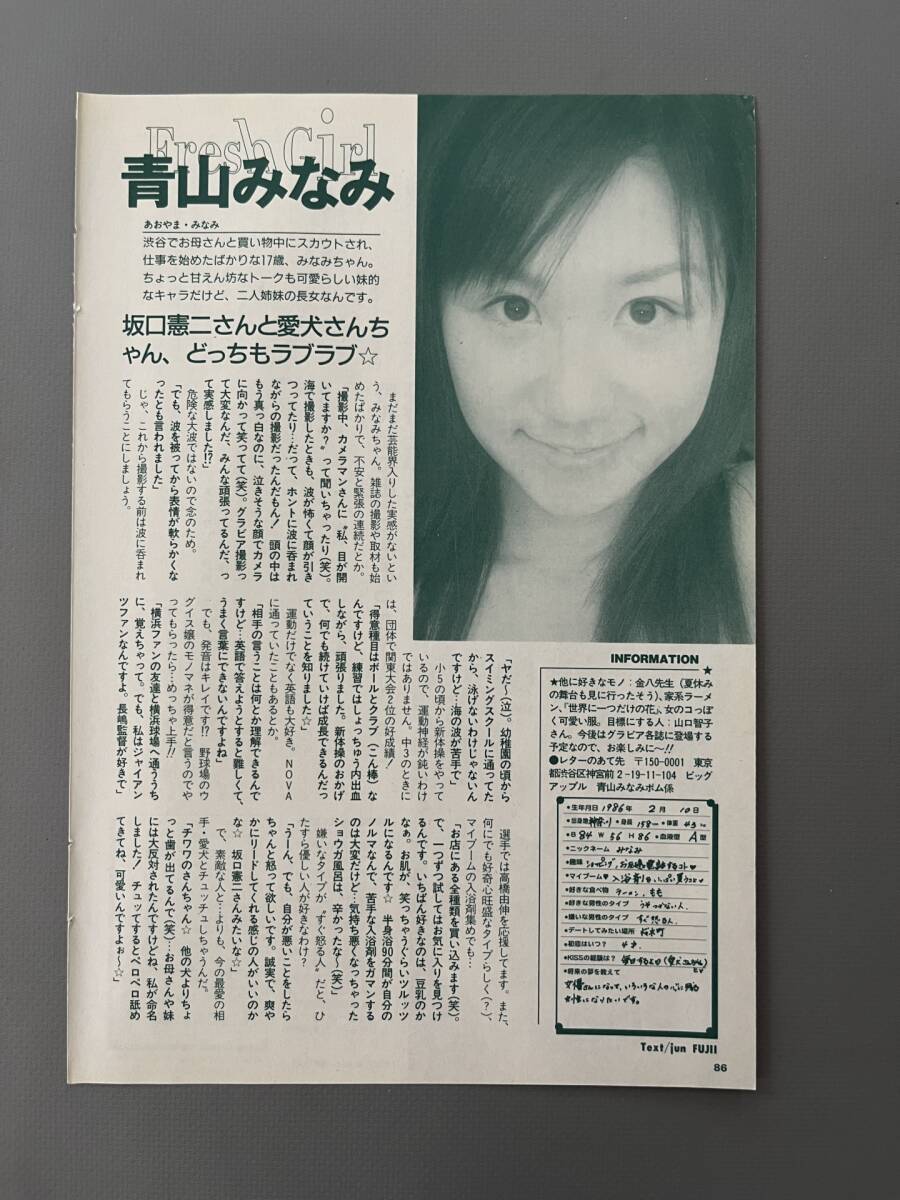 Fresh Girl
青山みなみ
あおやま・みなみ
渋谷でお母さんと買い物中にスカウトされ、
仕事を始めたばかりな17歳、みなみちゃん。
ちょっと甘えん坊なトークも可愛らしい妹的
なキャラだけど、二人姉妹の長女なんです。
坂口憲二さんと愛犬さんち
ゃん、どっちもラブラブ☆
まだまだ芸能界入りした実感がないとい
う、みなみちゃん。雑誌の撮影や取材も始
めたばかりで、不安と緊張の連続だとか。
「撮影中、カメラマンさんに〝私、目が開
いてますか?〟って聞いちゃったり(笑)。
海で撮影したときも、波が怖くて顔が引き
つってたり…だって、ホントに波に呑まれ
ながらの撮影だったんだもん! 頭の中は
もう真っ白なのに、泣きそうな顔でカメラ
に向かって笑ってて(笑)。グラビア撮影っ
て大変なんだ、みんな頑張ってるんだ、っ
て実感しました!?」
危険な大波ではないので念のため。
「でも、波を被ってから表情が軟らかくな
ったとも言われました」
じゃ、これから撮影する前は波に呑まれ
てもらうことにしましょう。
「ヤだ〜(泣)。幼稚園の頃から
スイミングスクールに通ってた
から、泳げないわけじゃないん
ですけど…海の波が苦手で」
小5の頃から新体操をやって
いるので、運動神経が鈍いわけ
ではありません。中3のときに
は、団体で関東大会2位の好成績!
「得意種目はボールとクラブ(こん棒)な
んですけど、練習ではしょっちゅう内出血
しながら、頑張りました。新体操のおかげ
で、何でも続けていけば成長できるんだっ
ていうことを知りました」
運動だけでなく英語も大好き。NOVA
に通っていたこともあるとか。
「相手の言うことは何とか理解できるんで
すけど…英語で答えようとすると難しくて、
うまく言葉にできないんですよね」
でも、発音はキレイです!? 野球場のウ
グイス嬢のモノマネが得意だと言うのでや
ってもらったら…めっちゃ上手!!
「横浜ファンの友達と横浜球場へ通ううち
に、覚えちゃって。でも、私はジャイアン
ツファンなんですよ。長嶋監督が好きで」
選手では高橋由伸を応援してます。また、
何にでも好奇心旺盛なタイプらしく(?)、
マイブームの入浴剤集めでも…。
「お店にある全種類を買い込みます(笑)。
で、一つずつ試してはお気に入りを見つけ
るんです。いちばん好きなのは、豆乳のか
なぁ。お肌が、笑っちゃうぐらいツル・ツ
ルになるんです☆ 半身浴90分間が自分の
ノルマなんで、苦手な入浴剤をガマンする
のは大変だけど…気持ち悪くなっちゃった
ショウガ風呂は、辛かったな〜(笑)」
嫌いなタイプが〝すぐ怒る人〟だと、ひ
たすら優しい人が好きなわけ?
「うーん、でも、自分が悪いことをしたら
ちゃんと怒って欲しいです。誠実で、爽や
かにリードしてくれる感じの人がいいのか
な☆ 坂口憲二さんみたいな☆」
で、素敵な人と…よりも、今の最愛の相
手・愛犬とチュッチュしちゃうんだ。
「チワワのさんちゃん☆ 他の犬よりちょ
っと歯が出てるんで(笑)…お母さんや妹
には大反対されたんですけどね、私が命名
しました! チュッてするとペロペロ舐め
てきてね、可愛いんですよぉ〜☆」
INFORMATION
★他に好きなモノ：金八先生(夏休み
の舞台も見に行ったそう)、家系ラーメ
ン、『世界に一つだけの花』、女のコっぽ
く可愛い服。目標にする人：山口智子
さん。今後はグラビア各誌に登場する
予定なので、お楽しみに〜!!
●レターのあて先 〒150-0001 東京
都渋谷区神宮前2-19-11-104 ビッグ
アップル 青山みなみボム係
●生年月日 1986年 2月 10日
●出身地 神奈川 ●身長 158cm ●体重 43kg
●B 84 W 56 H 86 ●血液型 A型
●ニックネーム みなみ
●趣味 ショッピング、お風呂
●マイブーム♡ 入浴剤
●好きな食べ物 ラーメン、もも
●好きな男性のタイプ うそつかない人。
●嫌いな男性のタイプ すぐ怒る人。
●デートしてみたい場所 桜木町
●初恋はいつ? 4才。
●KISSの経験は? 毎日するよ(愛犬
●将来の夢を教えて
女優さんになって、いろいろな人の心に残る
女性になりたいです。
Text/jun FUJII
86